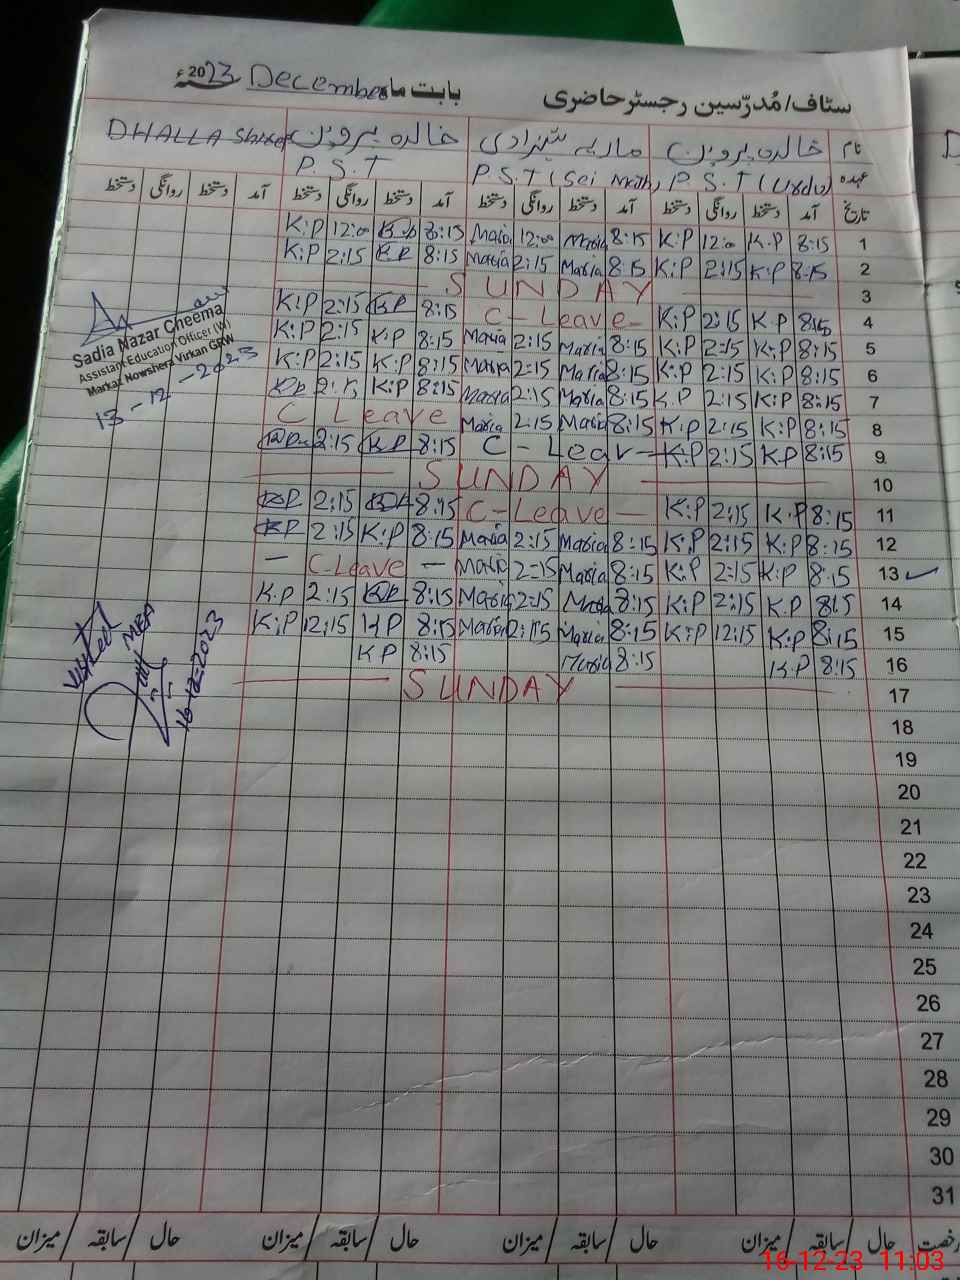 سٹاف/مُدرّسین رجسٹر حاضری بابت ماہ December 2023ء
نام خالدہ پروین ماریہ شہزادی خالدہ پروین DHALLA
عہدہ P.S.T (Urdu) P.S.T (Sci Math) P.S.T
تاریخ آمد دستخط روانگی دستخط آمد دستخط روانگی دستخط آمد دستخط روانگی دستخط آمد دستخط روانگی دستخط
1 8:15 K.P 12:00 K:P 8:15 Maria 12:00 Maria 8:15 K.P 12:00 K:P
2 8:15 K:P 2:15 K:P 8:15 Maria 2:15 Maria 8:15 KP 2:15 K:P
3 SUNDAY
4 8:15 K.P 2:15 K:P C-Leave- 8:15 KP 2:15 K:P
5 8:15 K:P 2:15 K:P 8:15 Maria 2:15 Maria 8:15 K:P 2:15 K:P
6 8:15 K:P 2:15 K:P 8:15 Maria 2:15 Maria 8:15 K:P 2:15 K:P
7 8:15 K:P 2:15 K.P 8:15 Maria 2:15 Maria 8:15 K:P 2:15 KP
8 8:15 K:P 2:15 K:P 8:15 Maria 2:15 Maria C Leave
9 8:15 K.P 2:15 K:P C-Leav- 8:15 KP 2:15
10 SUNDAY
11 8:15 K.P 2:15 K:P C-Leave- 8:15 2:15 KP
12 8:15 K:P 2:15 K:P 8:15 Maria 2:15 Maria 8:15 K:P 2:15 KP
13 ✓ 8:15 K:P 2:15 K:P 8:15 Maria 2:15 Maria - C-Leave -
14 8:15 K.P 2:15 K:P 8:15 Maria 2:15 Maria 8:15 KP 2:15 K.P
15 8:15 K:P 12:15 K:P 8:15 Maria 12:15 Maria 8:15 K.P 12:15 K:P
16 8:15 K.P 8:15 Maria 8:15 KP
17 SUNDAY
18
19
20
21
22
23
24
25
26
27
28
29
30
31
رخصت حال / سابقہ / میزان حال / سابقہ / میزان حال / سابقہ / میزان حال / سابقہ / میزان
Sadia Nazar Cheema
Assistant Education Officer (W)
Markaz Nowshera Virkan GRW
13-12-2023
Visited
MEA
16-12-2023
16-12-23 11:03